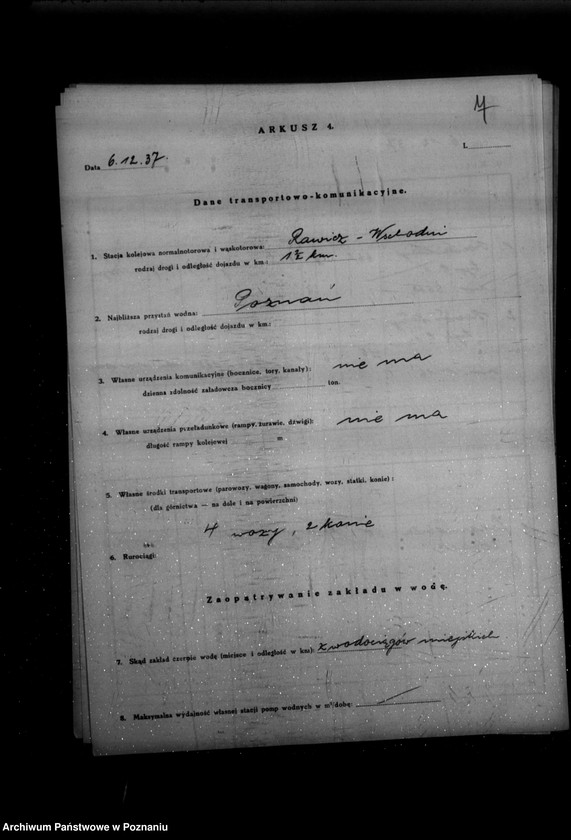 ARKUSZ 4.
Data 6.12.37.
Dane transportowo-komunikacyjne.
1. Stacja kolejowa normalnotorowa i wąskotorowa: Rawicz – Wschodni
rodzaj drogi i odległość dojazdu w km.: 1½ km.
2. Najbliższa przystań wodna: Poznań
rodzaj drogi i odległość dojazdu w km.:
3. Własne urządzenia komunikacyjne (bocznice, tory, kanały): nie ma
dzienna zdolność załadowcza bocznicy ton.
4. Własne urządzenia przeładunkowe (rampy, żurawie, dźwigi): nie ma
długość rampy kolejowej m
5. Własne środki transportowe (parowozy, wagony, samochody, wozy, statki, konie):
(dla górnictwa — na dole i na powierzchni)
4 wozy, 2 konie
6. Rurociągi:
Zaopatrywanie zakładu w wodę.
7. Skąd zakład czerpie wodę (miejsce i odległość w km): z wodociągów miejskich
8. Maksymalna wydajność własnej stacji pomp wodnych w m³/dobę: —
Archiwum Państwowe w Poznaniu